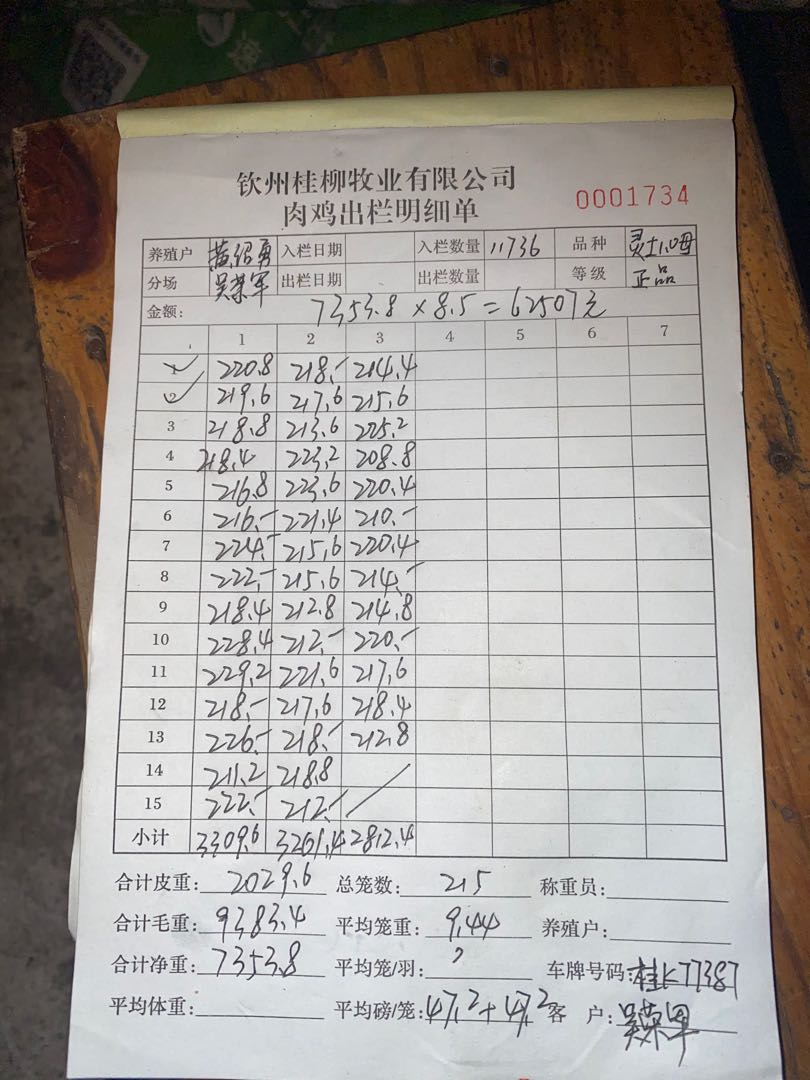 钦州桂柳牧业有限公司
肉鸡出栏明细单
0001734
养殖户 黄绍勇 入栏日期 入栏数量 11736 品种
分场 吴荣军 出栏日期 出栏数量 等级 正品
金额: 7353.8 × 8.5 = 62507元
1 2 3 4 5 6 7
1 220.8 218.- 214.4
2 219.6 217.6 215.6
3 218.8 213.6 225.2
4 218.4 223.2 208.8
5 216.8 223.6 220.4
6 216.- 221.4 210.-
7 224.- 215.6 220.4
8 222.- 215.6 214.-
9 218.4 212.8 214.8
10 228.4 212.- 220.-
11 229.2 221.6 217.6
12 218.- 217.6 218.4
13 226.- 218.- 212.8
14 211.2 218.8
15 222.- 212.-
小计 3309.6 3261.4 2812.4
合计皮重: 2029.6 总笼数: 215 称重员:
合计毛重: 9383.4 平均笼重: 9.44 养殖户:
合计净重: 7353.8 平均笼/羽: 车牌号码: 桂K77387
平均体重: 平均磅/笼: 47.2+47.2 客 户: 吴荣军